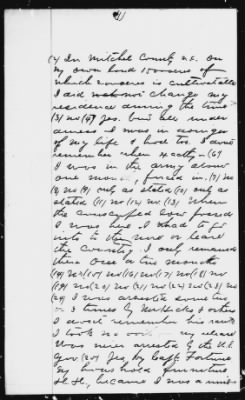 41
(2) In Mitchel County N.C. on
my own land 150 acres of
which 20 acres is cultivatable
I did not change my
residence during the time
(3) no (4) Yes. but all under
duress I was in danger
of my life & had to. I dont
remember when exactly (6)
I was in the army about
one month, forced in. (7) no
(8) no (9) only as stated (10) only as
stated (11) no (12) no (13) When
the conscript law forced
I was here I had to go
into the war or leave
the County. I only remained
there over a month
(14) no (15) no (16) no (17) no (18) no
(19) no (20) no (21) no (22) no (23) no
(24) I was arrested some two
or 3 times by Kirk & others
I dont remember his
I took no my release
Was never arrested by the U.S.
Gov (25) yes, by Capt Fortune
my house hold furniture
&c &c, because I was a